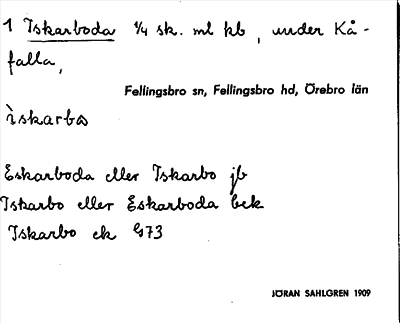 1 Iskarboda ¼ sk. ml kb, under Kå-
falla,
Fellingsbro sn, Fellingsbro hd, Örebro län
ìskarbo
Eskarboda eller Iskarbo jb
Iskarbo eller Eskarboda bek
Iskarbo ek G73
JÖRAN SAHLGREN 1909